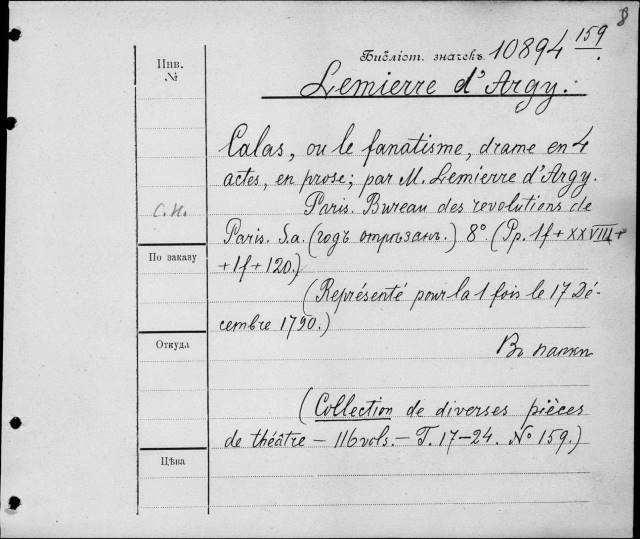 8
Инв. №
Библіот. значекъ 10894 159
Lemierre d'Argy.
Calas, ou le fanatisme, drame en 4
actes, en prose; par M. Lemierre d'Argy.
Paris. Bureau des revolutions de
С.Н.
Paris. S.a. (годъ отрѣзанъ.) 8°. (Pp. 1f + XXVIII +
По заказу
+ 1f + 120.)
(Représenté pour la 1 fois le 17 Dé-
cembre 1790.)
Откуда
Въ папки
(Collection de diverses pièces
de théâtre – 116 vols. – T. 17–24. No 159.)
Цѣна